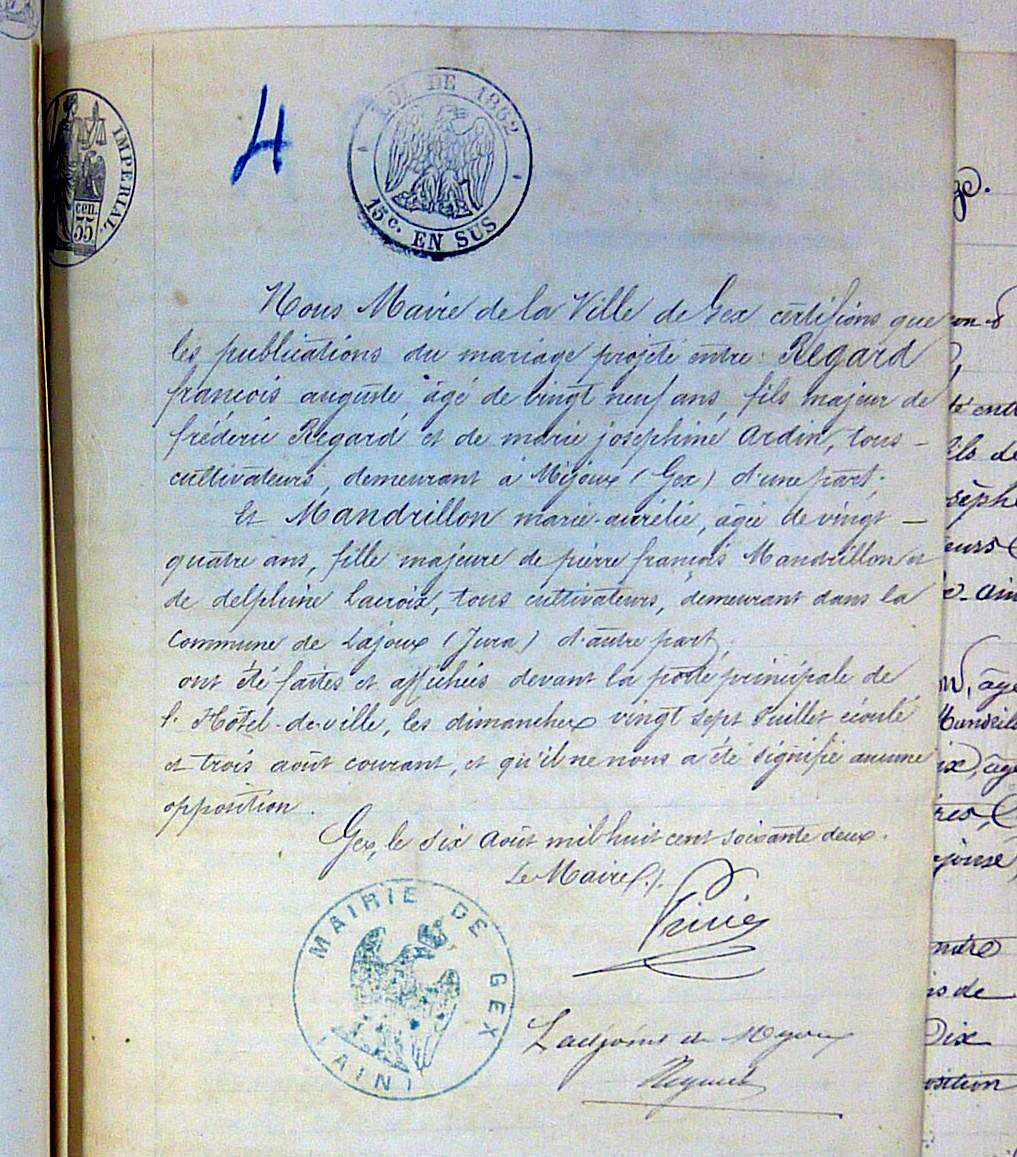 4
LOI DE 1862
15 c. EN SUS
IMPERIAL.
cen.
35
Nous Maire de la Ville de Gex certifions que
les publications du mariage projeté entre : Regard
francois auguste âgé de vingt neuf ans, fils majeur de
fréderic Regard et de marie josephine Ardin, tous –
cultivateurs, demeurant à Mijoux (Gex) d'une part,
Et Mandrillon marie-aurélie, âgée de vingt –
quatre ans, fille majeure de pierre françois Mandrillon et
de delphine lacroix, tous cultivateurs, demeurant dans la
Commune de Lajoux (Jura) d'autre part,
ont été faites et affichées devant la porte principale de
l'Hôtel-de-ville, les dimanches vingt sept Juillet écoulé
et trois août courant, et qu'il ne nous a été signifié aucune
opposition.
Gex, le six Août mil huit cent soixante deux.
Le Maire
MAIRIE DE GEX
(AIN)
L'adjoint de Mijoux
ge.
âge
ix, âgé
Dix